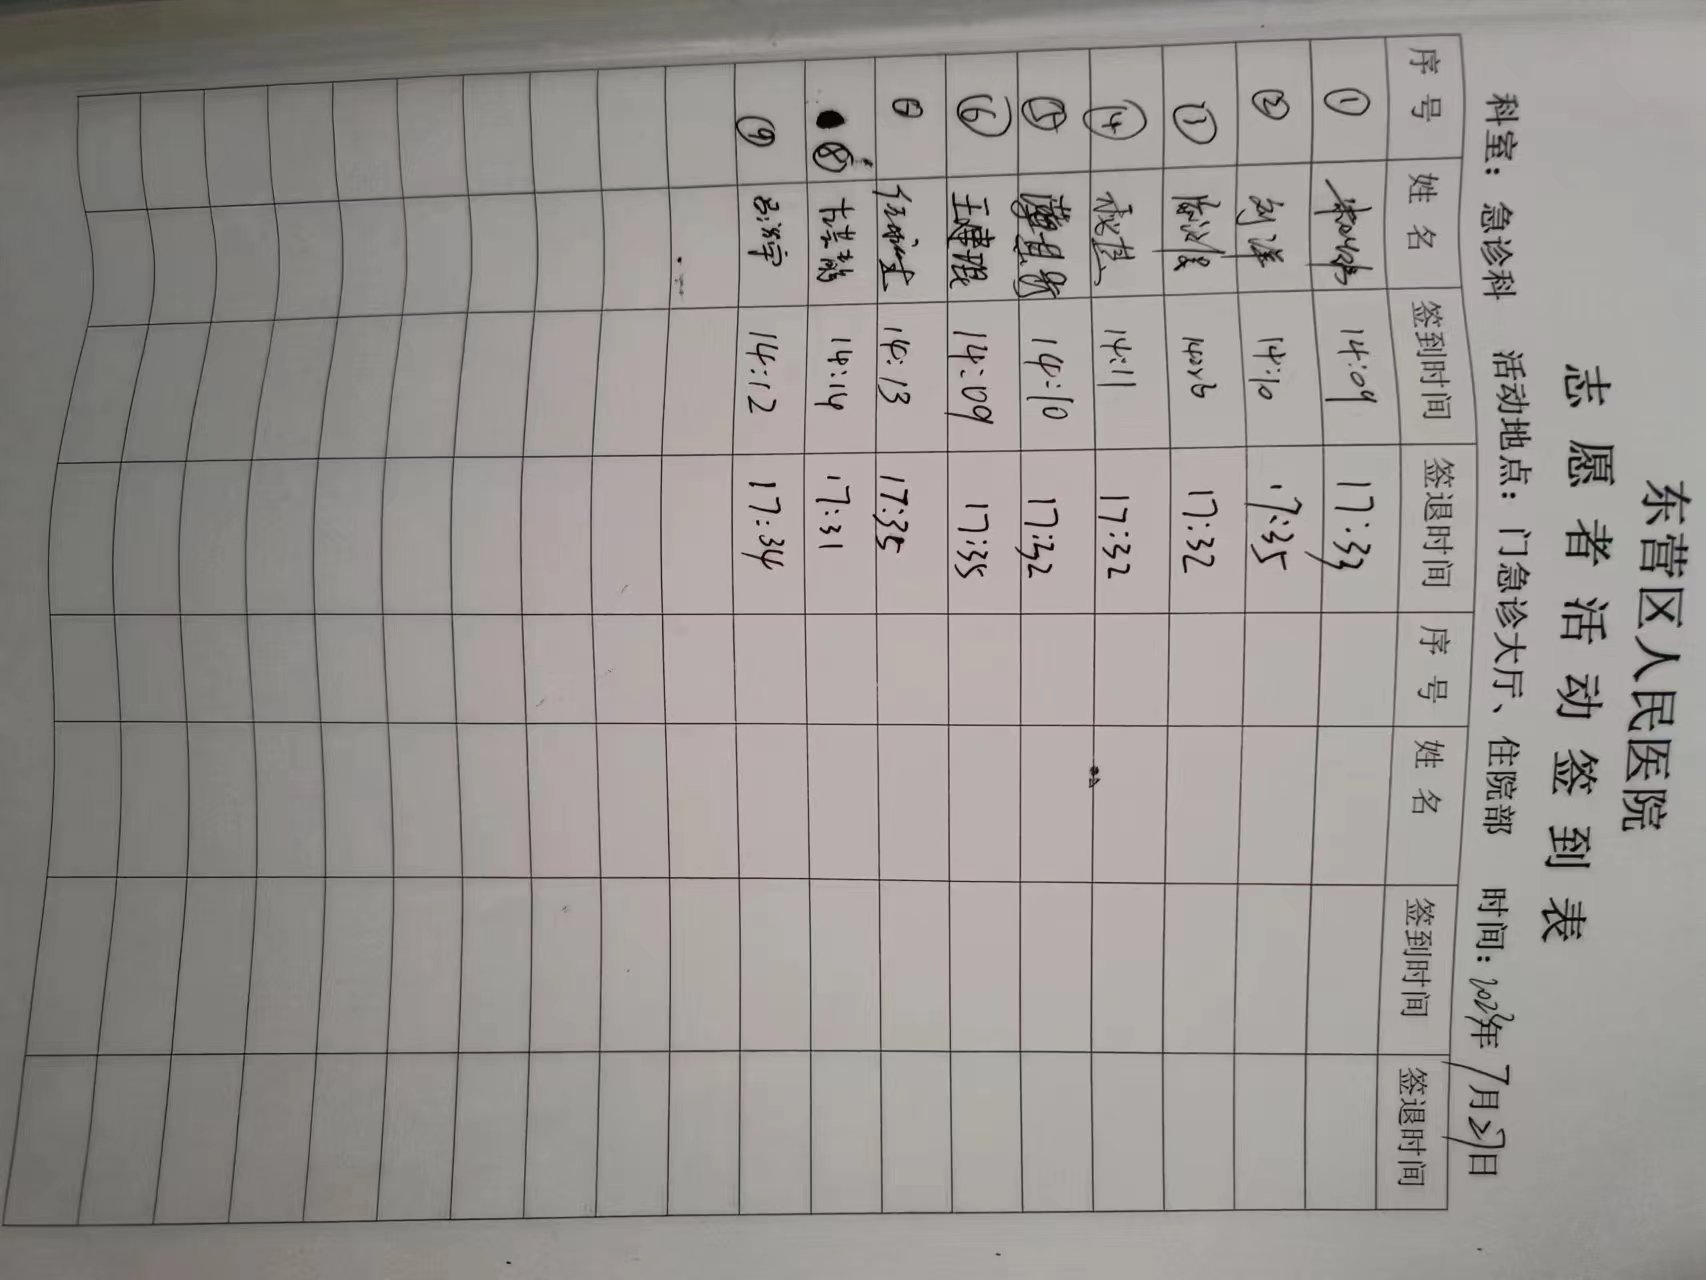 东营区人民医院
志愿者活动签到表
科室：急诊科 活动地点：门急诊大厅、住院部 时间：2023年7月27日
序号 姓名 签到时间 签退时间 序号 姓名 签到时间 签退时间
① 14:09 17:33
② 刘洋 14:10 17:35
③ 17:32
④ 14:11 17:32
⑤ 14:10 17:32
⑥ 14:09 17:35
⑦ 14:13 17:35
⑧ 14:14 17:31
⑨ 14:12 17:34